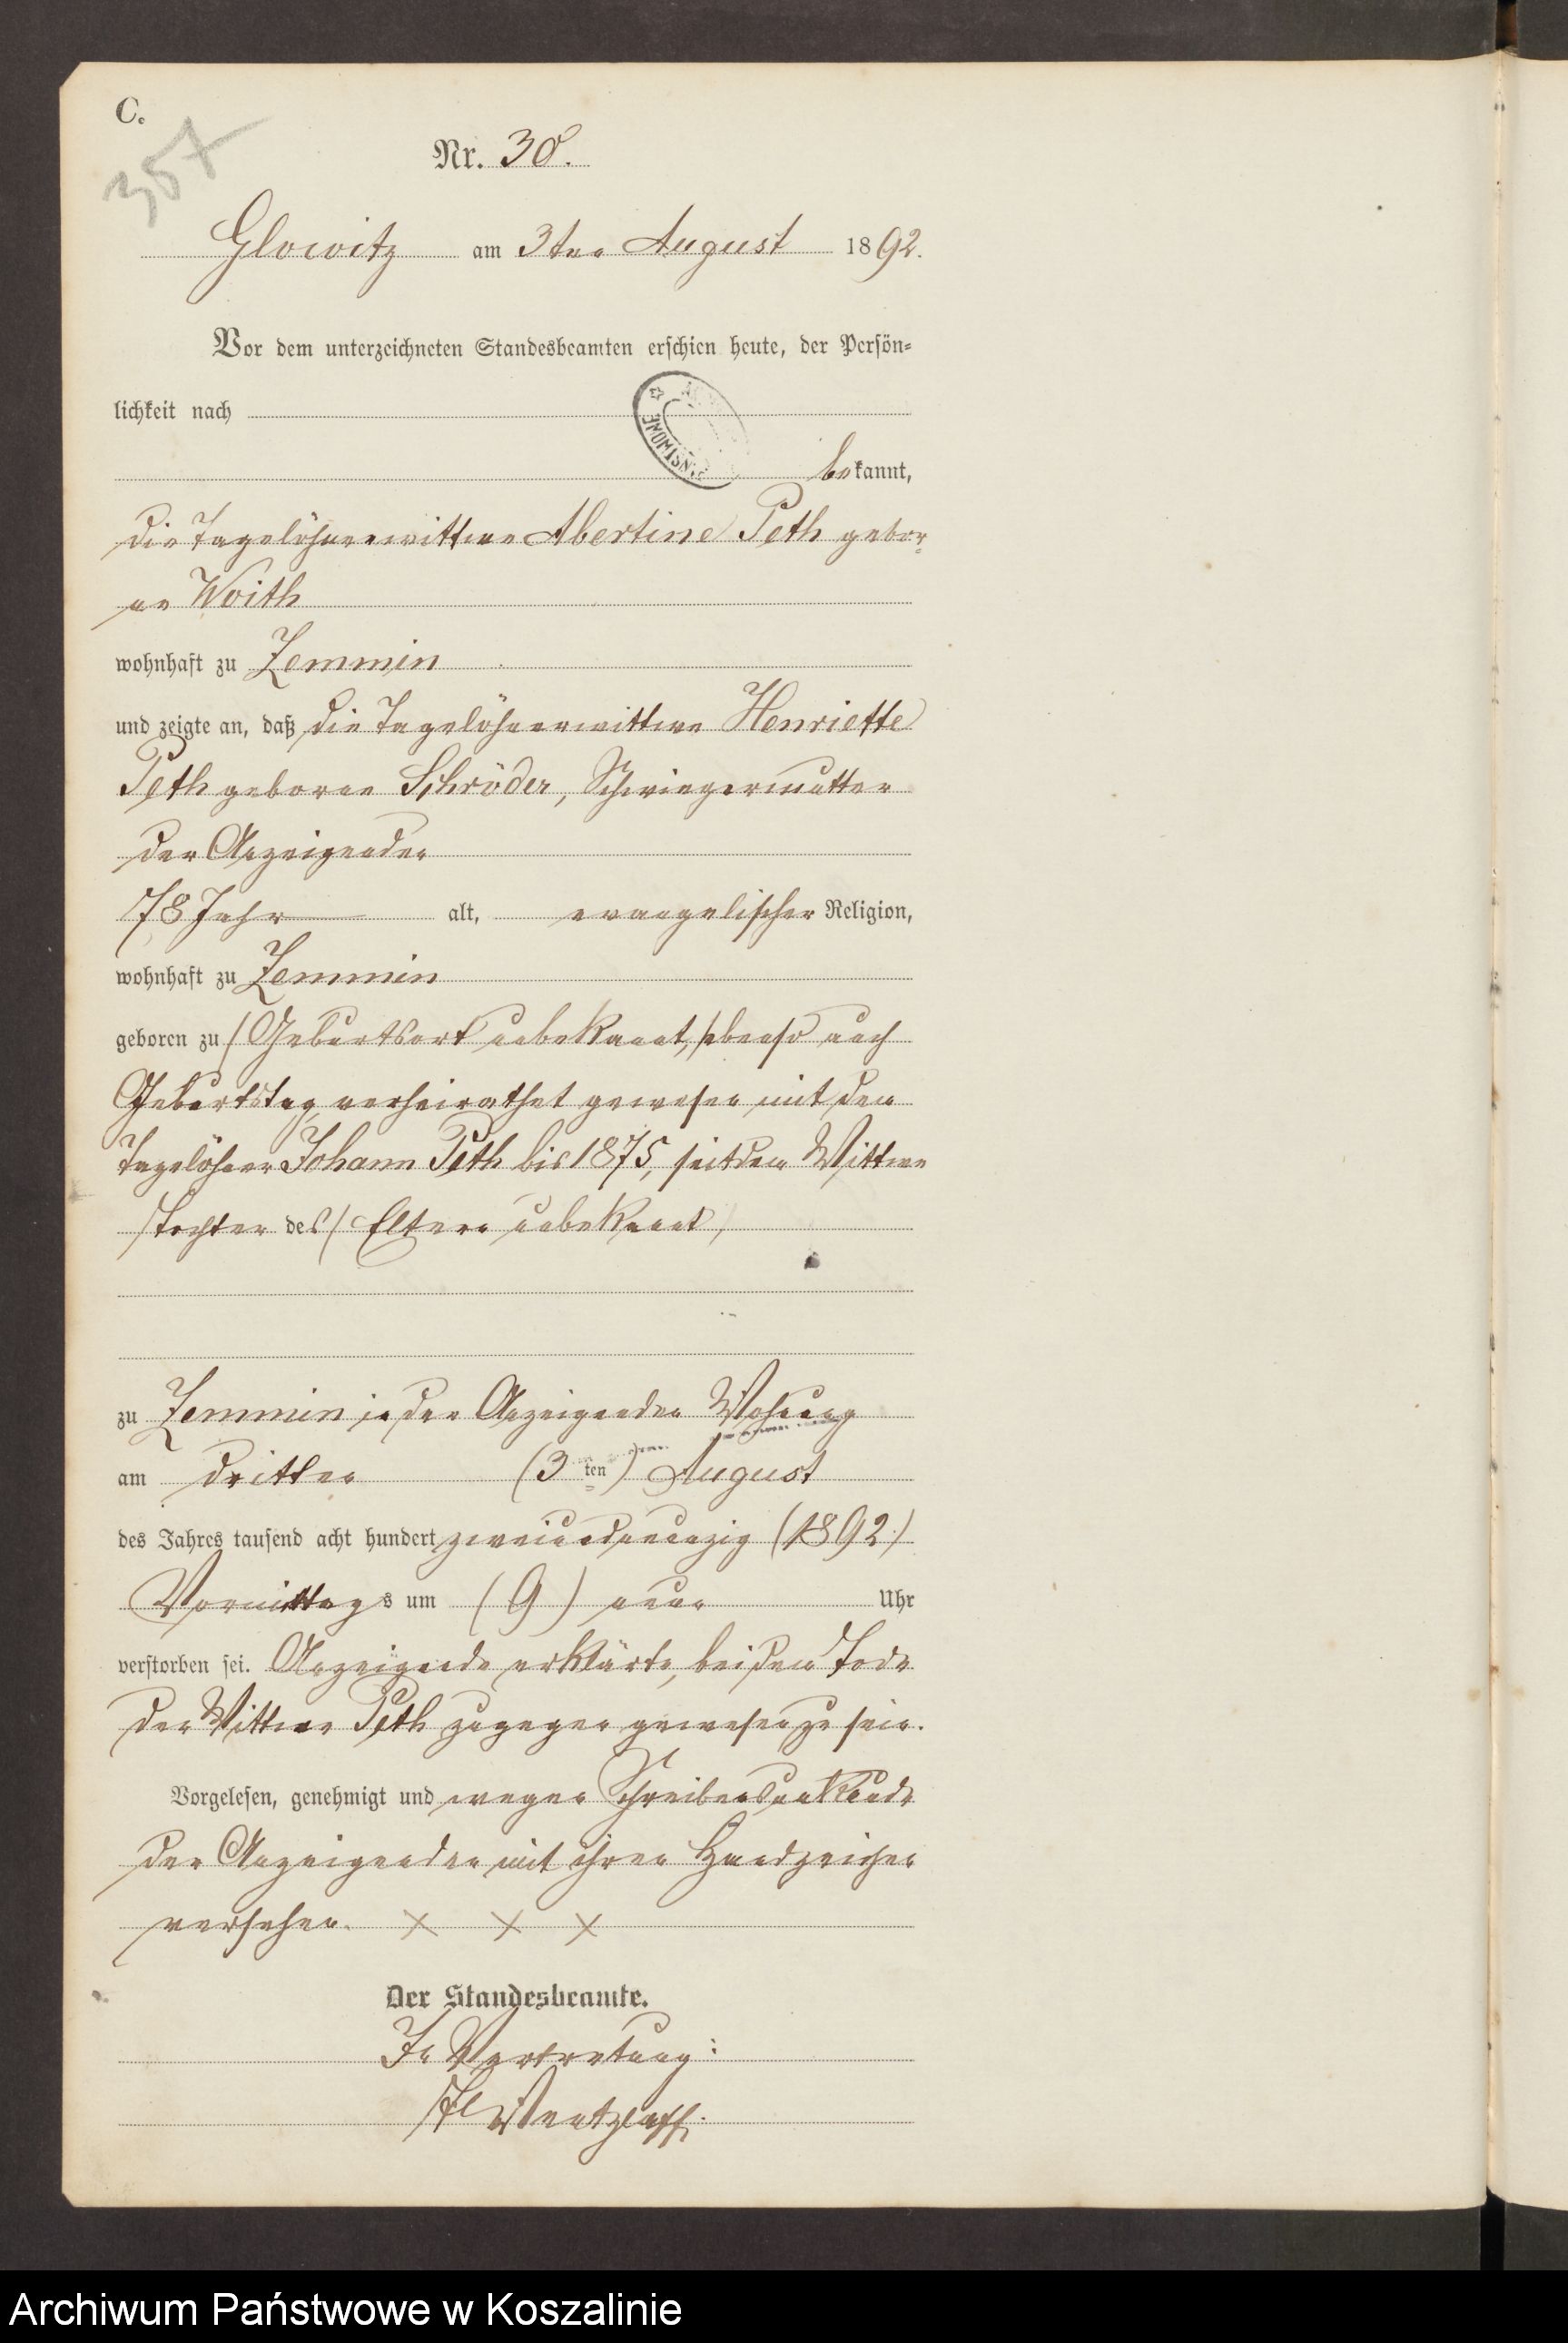 C.
357
Nr. 30.
Glowitz am 3ten August 1892.
Vor dem unterzeichneten Standesbeamten erschien heute, der Persön-
lichkeit nach
bekannt,
die Tagelöhnerwittwe Albertine Peth gebor-
ne Woith
wohnhaft zu Zemmin
und zeigte an, daß die Tagelöhnerwittwe Henriette
Peth geborne Schröder, Schwiegermutter
der Anzeigenden
78 Jahr alt, evangelischer Religion,
wohnhaft zu Zemmin
geboren zu / Geburtsort unbekannt, / ebenso auch
Geburtstag, verheirathet gewesen mit dem
Tagelöhner Johann Peth bis 1875, seitdem Wittwe
Tochter des / Eltern unbekannt /
zu Zemmin in der Anzeigenden Wohnung
am dritten (3ten) August
des Jahres tausend acht hundert zweiundneunzig (1892)
Vormittags um (9) neun Uhr
verstorben sei. Anzeigende erklärte, bei dem Tode
der Wittwe Peth zugegen gewesen zu sein.
Vorgelesen, genehmigt und wegen Schreibensunkunde
der Anzeigenden mit ihren Handzeichen
versehen. × × ×
Der Standesbeamte.
In Vertretung:
Wentzlaff.
Archiwum Państwowe w Koszalinie